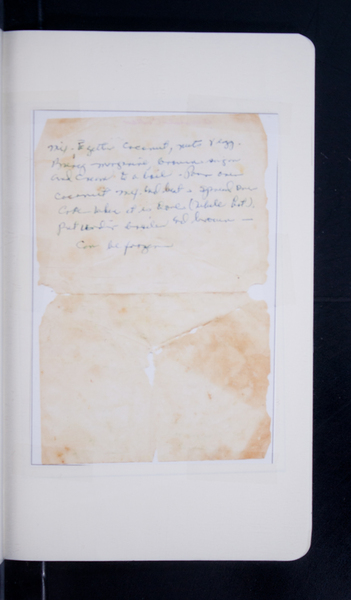 Mix together Coconut, nuts & egg.
Bring margarine brown sugar
and Cream to a boil. Pour over
Coconut mixture & spread on
Cake when it is done (while hot).
Put under broiler to brown
Can be frozen